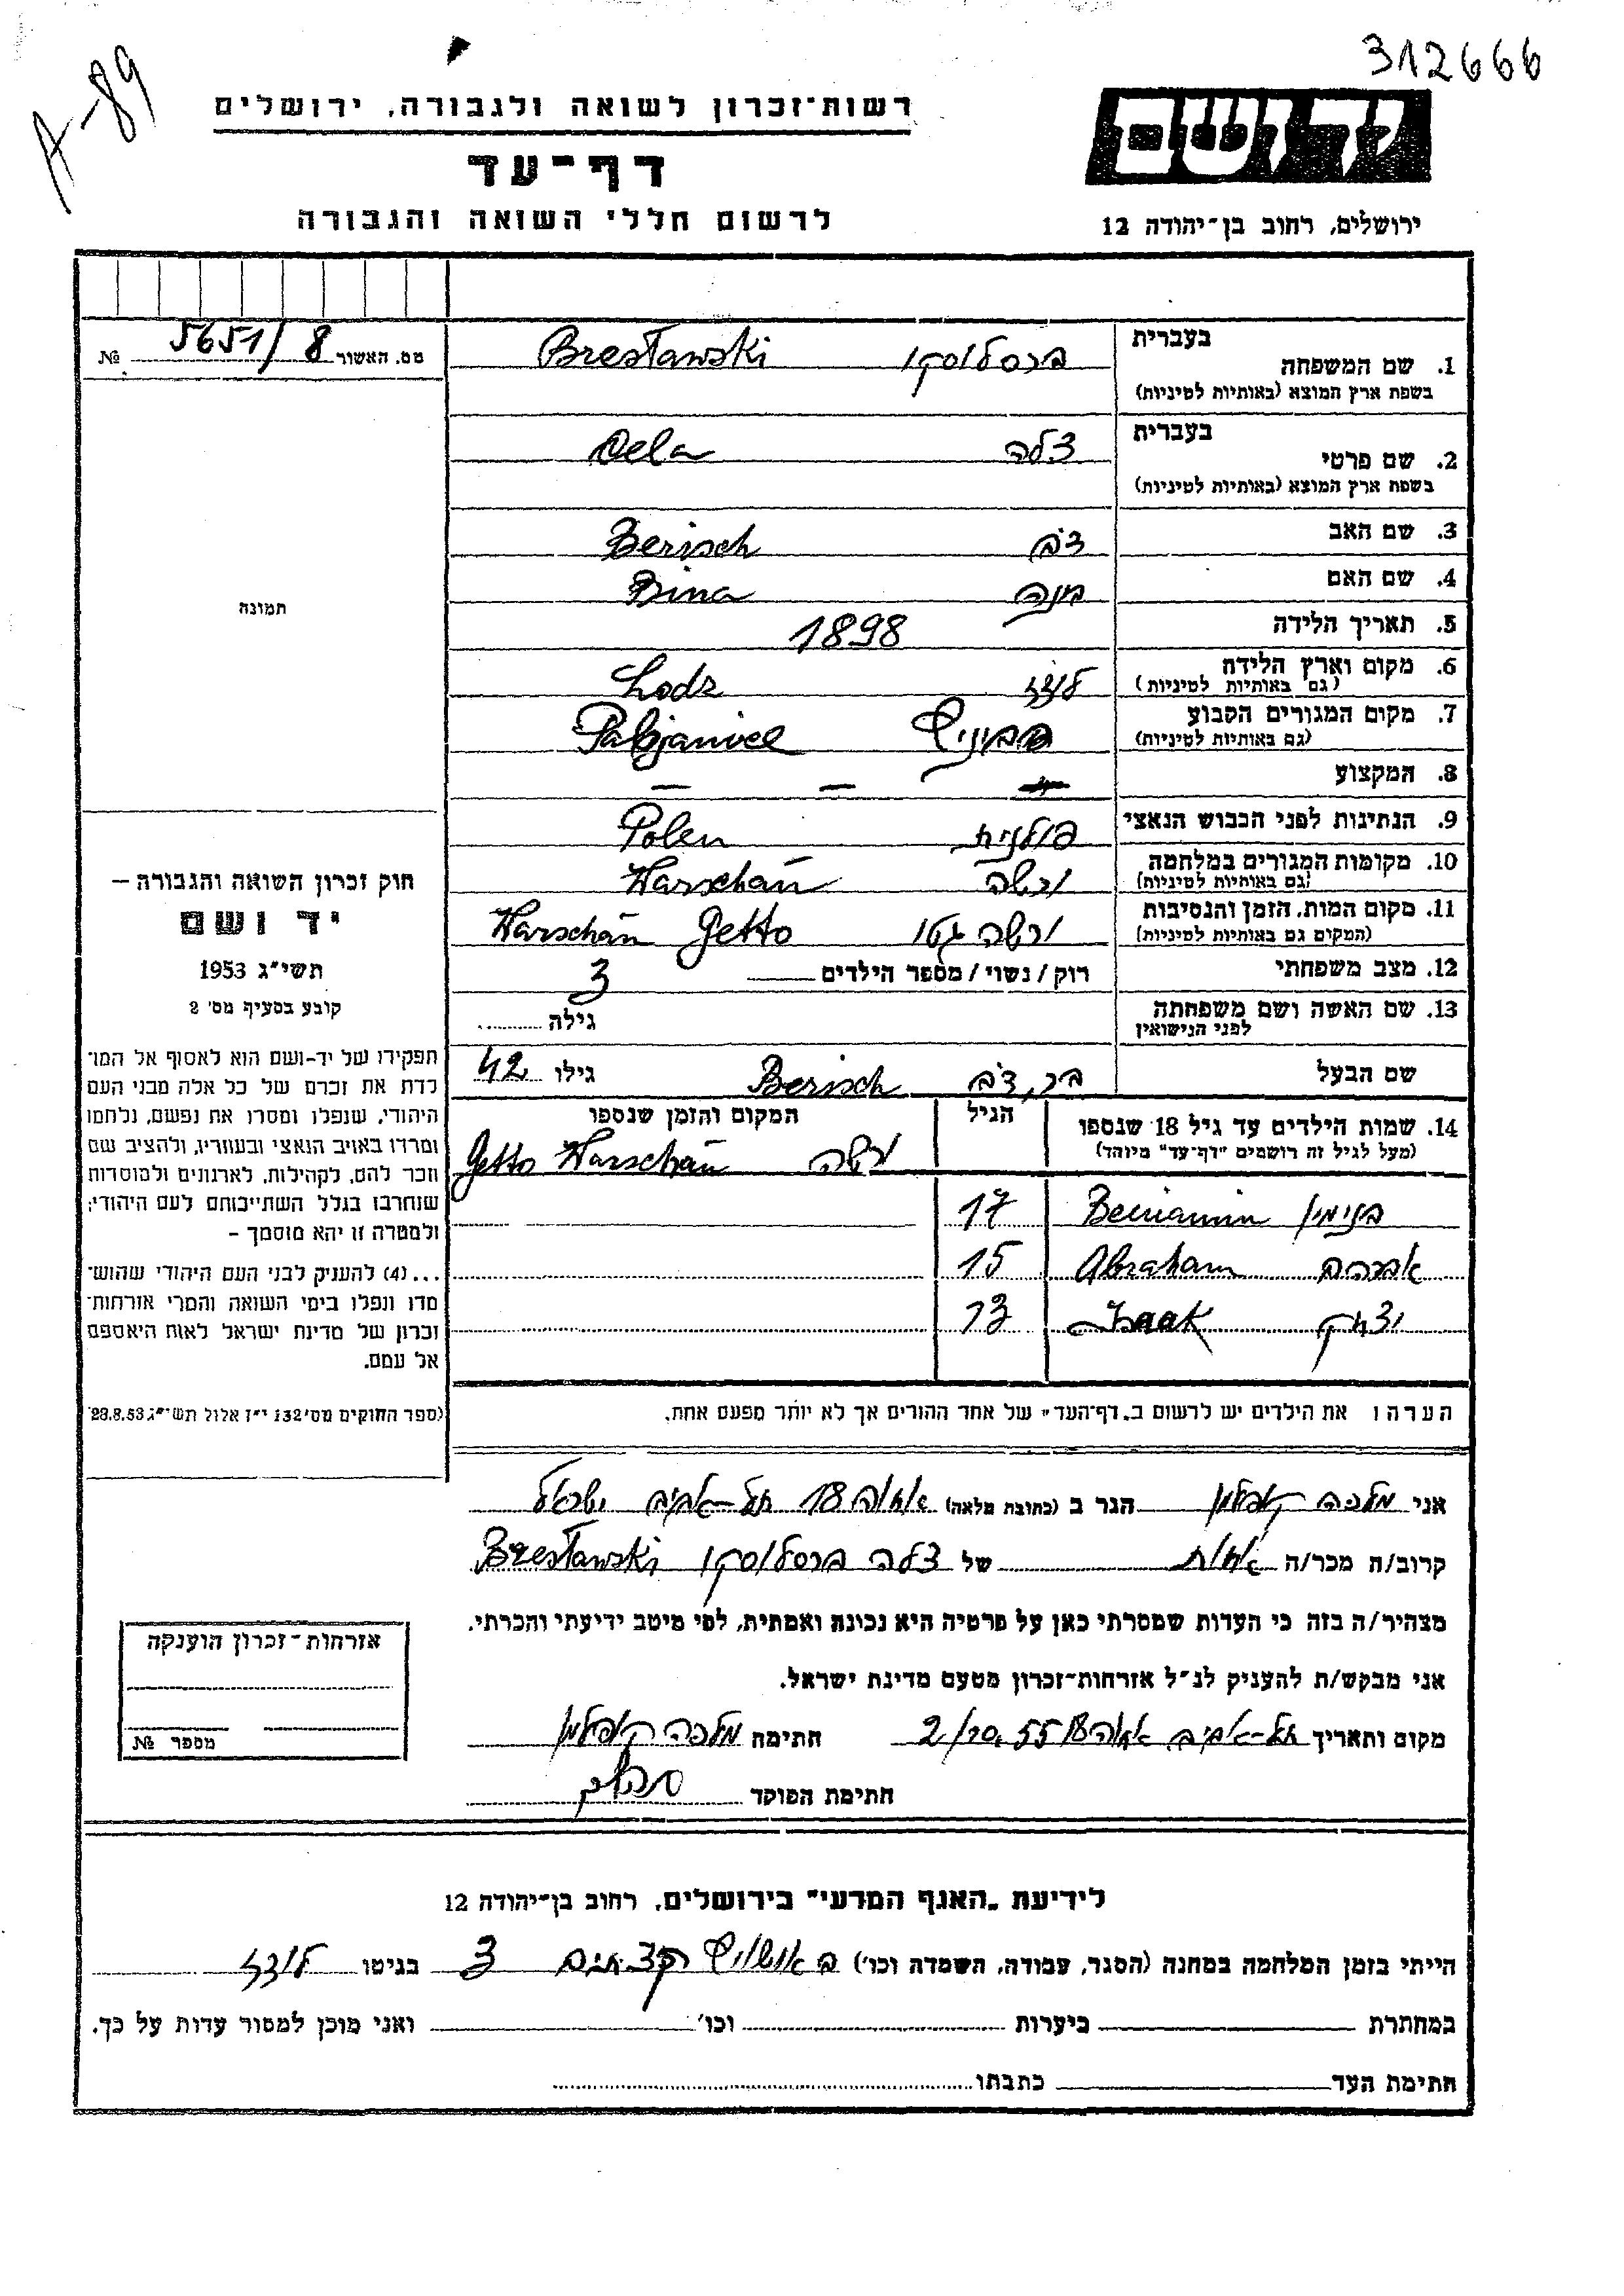 A-89
312666
רשות־זכרון לשואה ולגבורה, ירושלים
דף־עד
לרשום חללי השואה והגבורה
יד ושם
ירושלים, רחוב בן־יהודה 12
מס. האשור 5651/8 №
בעברית
1. שם המשפחה ברסלוסקי Bresławski
בשפת ארץ המוצא (באותיות לטיניות)
בעברית
2. שם פרטי צלה
בשפת ארץ המוצא (באותיות לטיניות)
3. שם האב דב Berisch
4. שם האם בינה Bina
5. תאריך הלידה 1898
6. מקום וארץ הלידה לודז Lodz
(גם באותיות לטיניות)
7. מקום המגורים הקבוע
(גם באותיות לטיניות)
8. המקצוע — —
9. הנתינות לפני הכבוש הנאצי פולנית Polen
10. מקומות המגורים במלחמה ורשה Warschau
(גם באותיות לטיניות)
11. מקום המות, הזמן והנסיבות ורשה גטו Warschau Getto
(המקום גם באותיות לטיניות)
12. מצב משפחתי רוק/נשוי/מספר הילדים 3
13. שם האשה ושם משפחתה גילה
לפני הנישואין
שם הבעל דב Berisch גילו 42
14. שמות הילדים עד גיל 18 שנספו הגיל המקום והזמן שנספו
(מעל לגיל זה רושמים "דף־עד" מיוחד) ורשה Getto Warschau
בנימין Beniamin 17
אברהם Abraham 15
יצחק Izaak 13
הערה: את הילדים יש לרשום ב„דף־העד" של אחד ההורים אך לא יותר מפעם אחת.
תמונה
חוק זכרון השואה והגבורה –
יד ושם
תשי"ג 1953
קובע בסעיף מס' 2
תפקידו של יד-ושם הוא לאסוף אל המו־
לדת את זכרם של כל אלה מבני העם
היהודי, שנפלו ומסרו את נפשם, נלחמו
ומרדו באויב הנאצי ובעוזריו, ולהציב שם
וזכר להם, לקהילות, לארגונים ולמוסדות
שנחרבו בגלל השתייכותם לעם היהודי;
ולמטרה זו יהא מוסמך –
...(4) להעניק לבני העם היהודי שהוש־
מדו ונפלו בימי השואה והמרי אזרחות־
זכרון של מדינת ישראל לאות היאספם
אל עמם.
(ספר החוקים מס' 132 י"ז אלול תשי"ג 28.8.53
אני מלכה הגר ב (כתובת מלאה) 18 תל-אביב ישראל
קרוב/ת מכר/ה אחות של צלה ברסלוסקי Bresławski
מצהיר/ה בזה כי העדות שמסרתי כאן על פרטיה היא נכונה ואמתית, לפי מיטב ידיעתי והכרתי.
אני מבקש/ת להעניק לנ"ל אזרחות־זכרון מטעם מדינת ישראל.
מקום ותאריך תל-אביב 18 2/10.55 חתימה מלכה
חתימת הפוקד
אזרחות־זכרון הוענקה
מספר №
לידיעת „האגף המדעי" בירושלים, רחוב בן־יהודה 12
הייתי בזמן המלחמה במחנה (הסגר, עבודה, השמדה וכו') באושוויץ 3 בגיטו לודז
במחתרת ביערות וכו' ואני מוכן למסור עדות על כך.
חתימת העד כתבתו